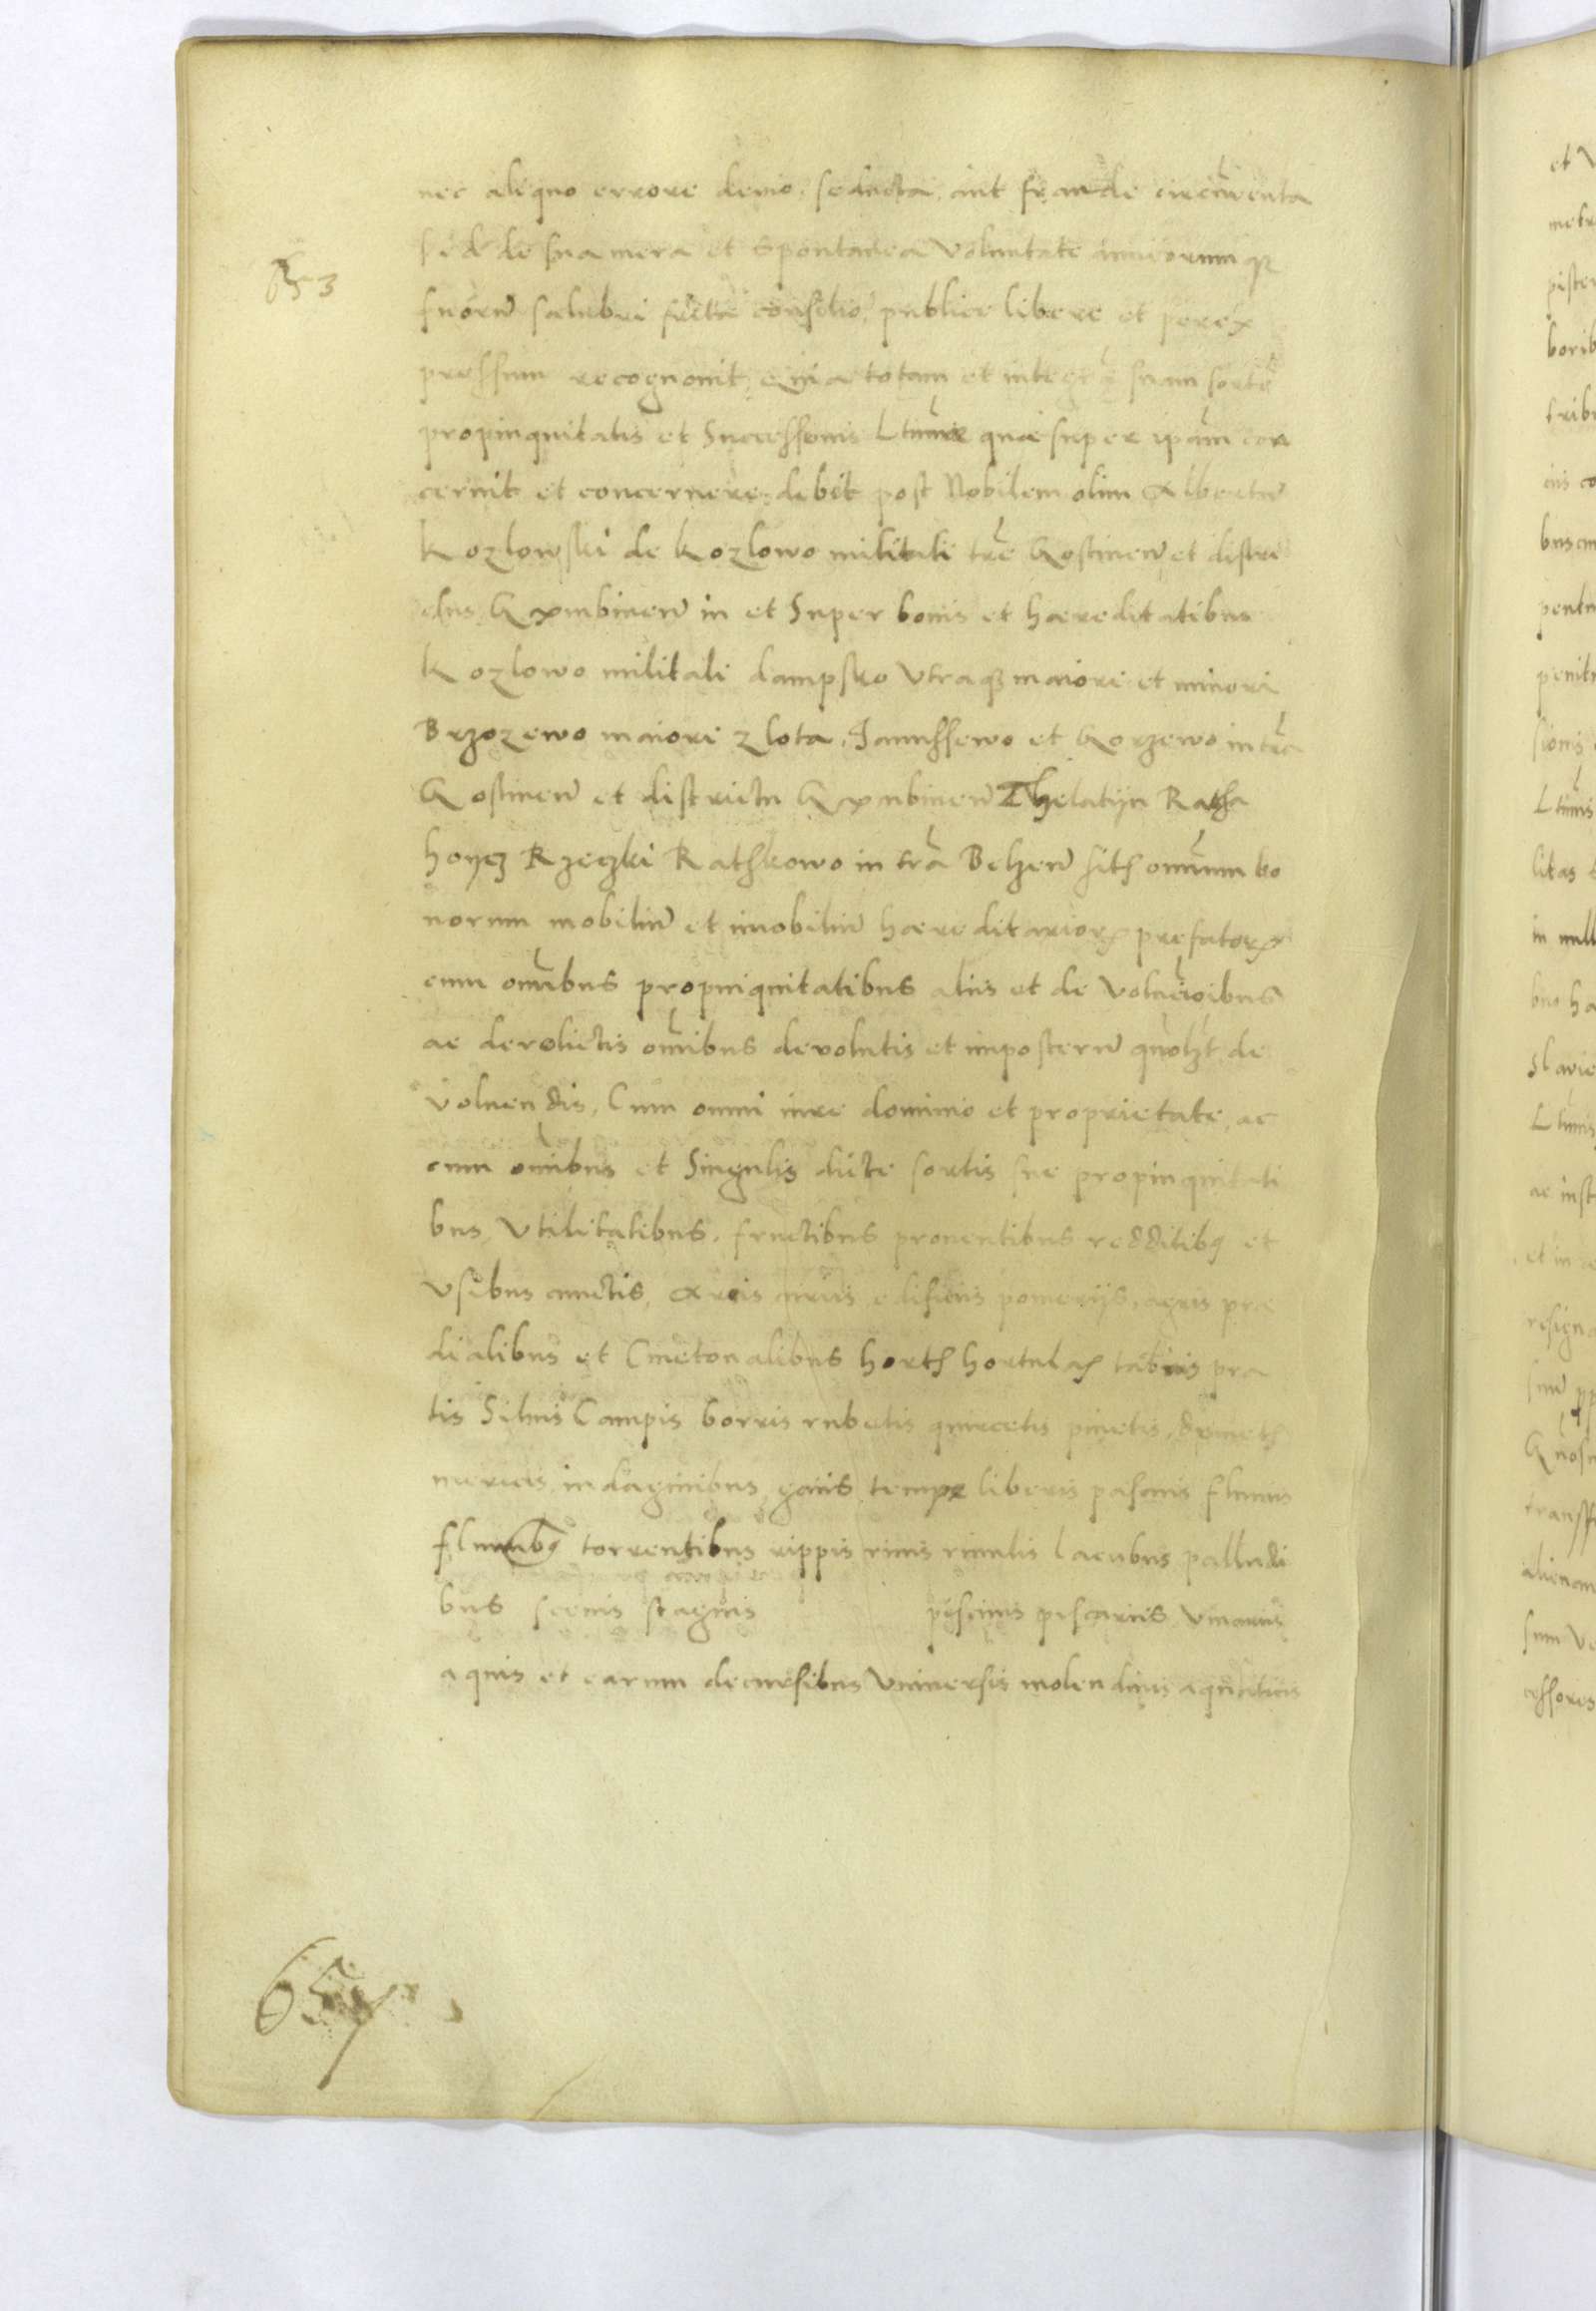 nec aliquo errore devio seducta aut fraude circumventa
sed de sua mera et spontanea voluntate amicorumq
653
suorum salubri freta consilio publice libere et perex
pressum recognovit Quia totam et integram suam sortem
propinquitatis et Successionis Ltimae quae super ipam con
cernit et concernere debet post Nobilem olim Albertum
Kozlowski de Kozlowo militali tre Gostinen et distri
ctus Gxmbinen in et Super bonis et haereditatibus
Kozlowo militali dampsko Vtraq maiori et minori
Brzozewo maiori zlota Janussewo et Gorzewo in tra
Gostinen et districtu Gxmbinen Thelatijn Ratha
hoycz Rzeczki Rathkowo in tra Belzen sith omnium bo
norum mobilium et imobilium haereditariorum prefatorum
cum omnibus propinquitatibus aliis et de Volucoibus
ac derelictis omnibus devolutis et imposterum quolzt de
volvendis, Cum omni iure dominio et proprietate ac
cum omnibus et Singulis dicte sortis sue propinquitati
bus Vtilitatibus, fructibus proventibus redditibq et
Vsibus cunctis, areis edificiis pomeriis, agris prae
dialibus et Cmetonalibus hortis hortulaz tabernis pra
tis Silvis Campis borris rubetis quercetis pinetis
mericis indaginibus gaiis liberis pascuis fluviis
fluminibq torrentibus rippis rivis rivulis lacubus palludi
bus stagnis piscinis piscariis Vivariis
aquis et earum decursibus Vniversis molendinis aquaticis
657